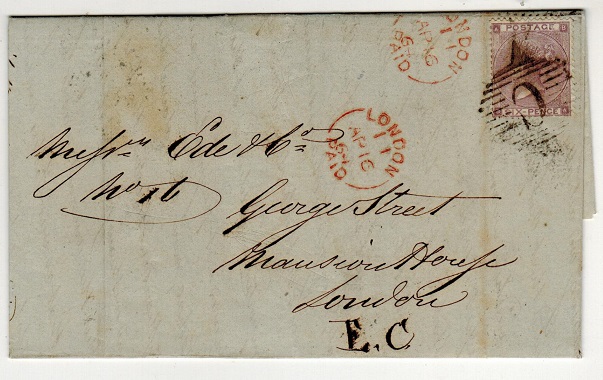 LONDON
11
AP 16
64
PAID
A POSTAGE B
B SIX-PENCE A
2
LONDON
11
AP 16
64
PAID
Messrs Ede & Co
No 16
George Street
Mansion House
London
E.C